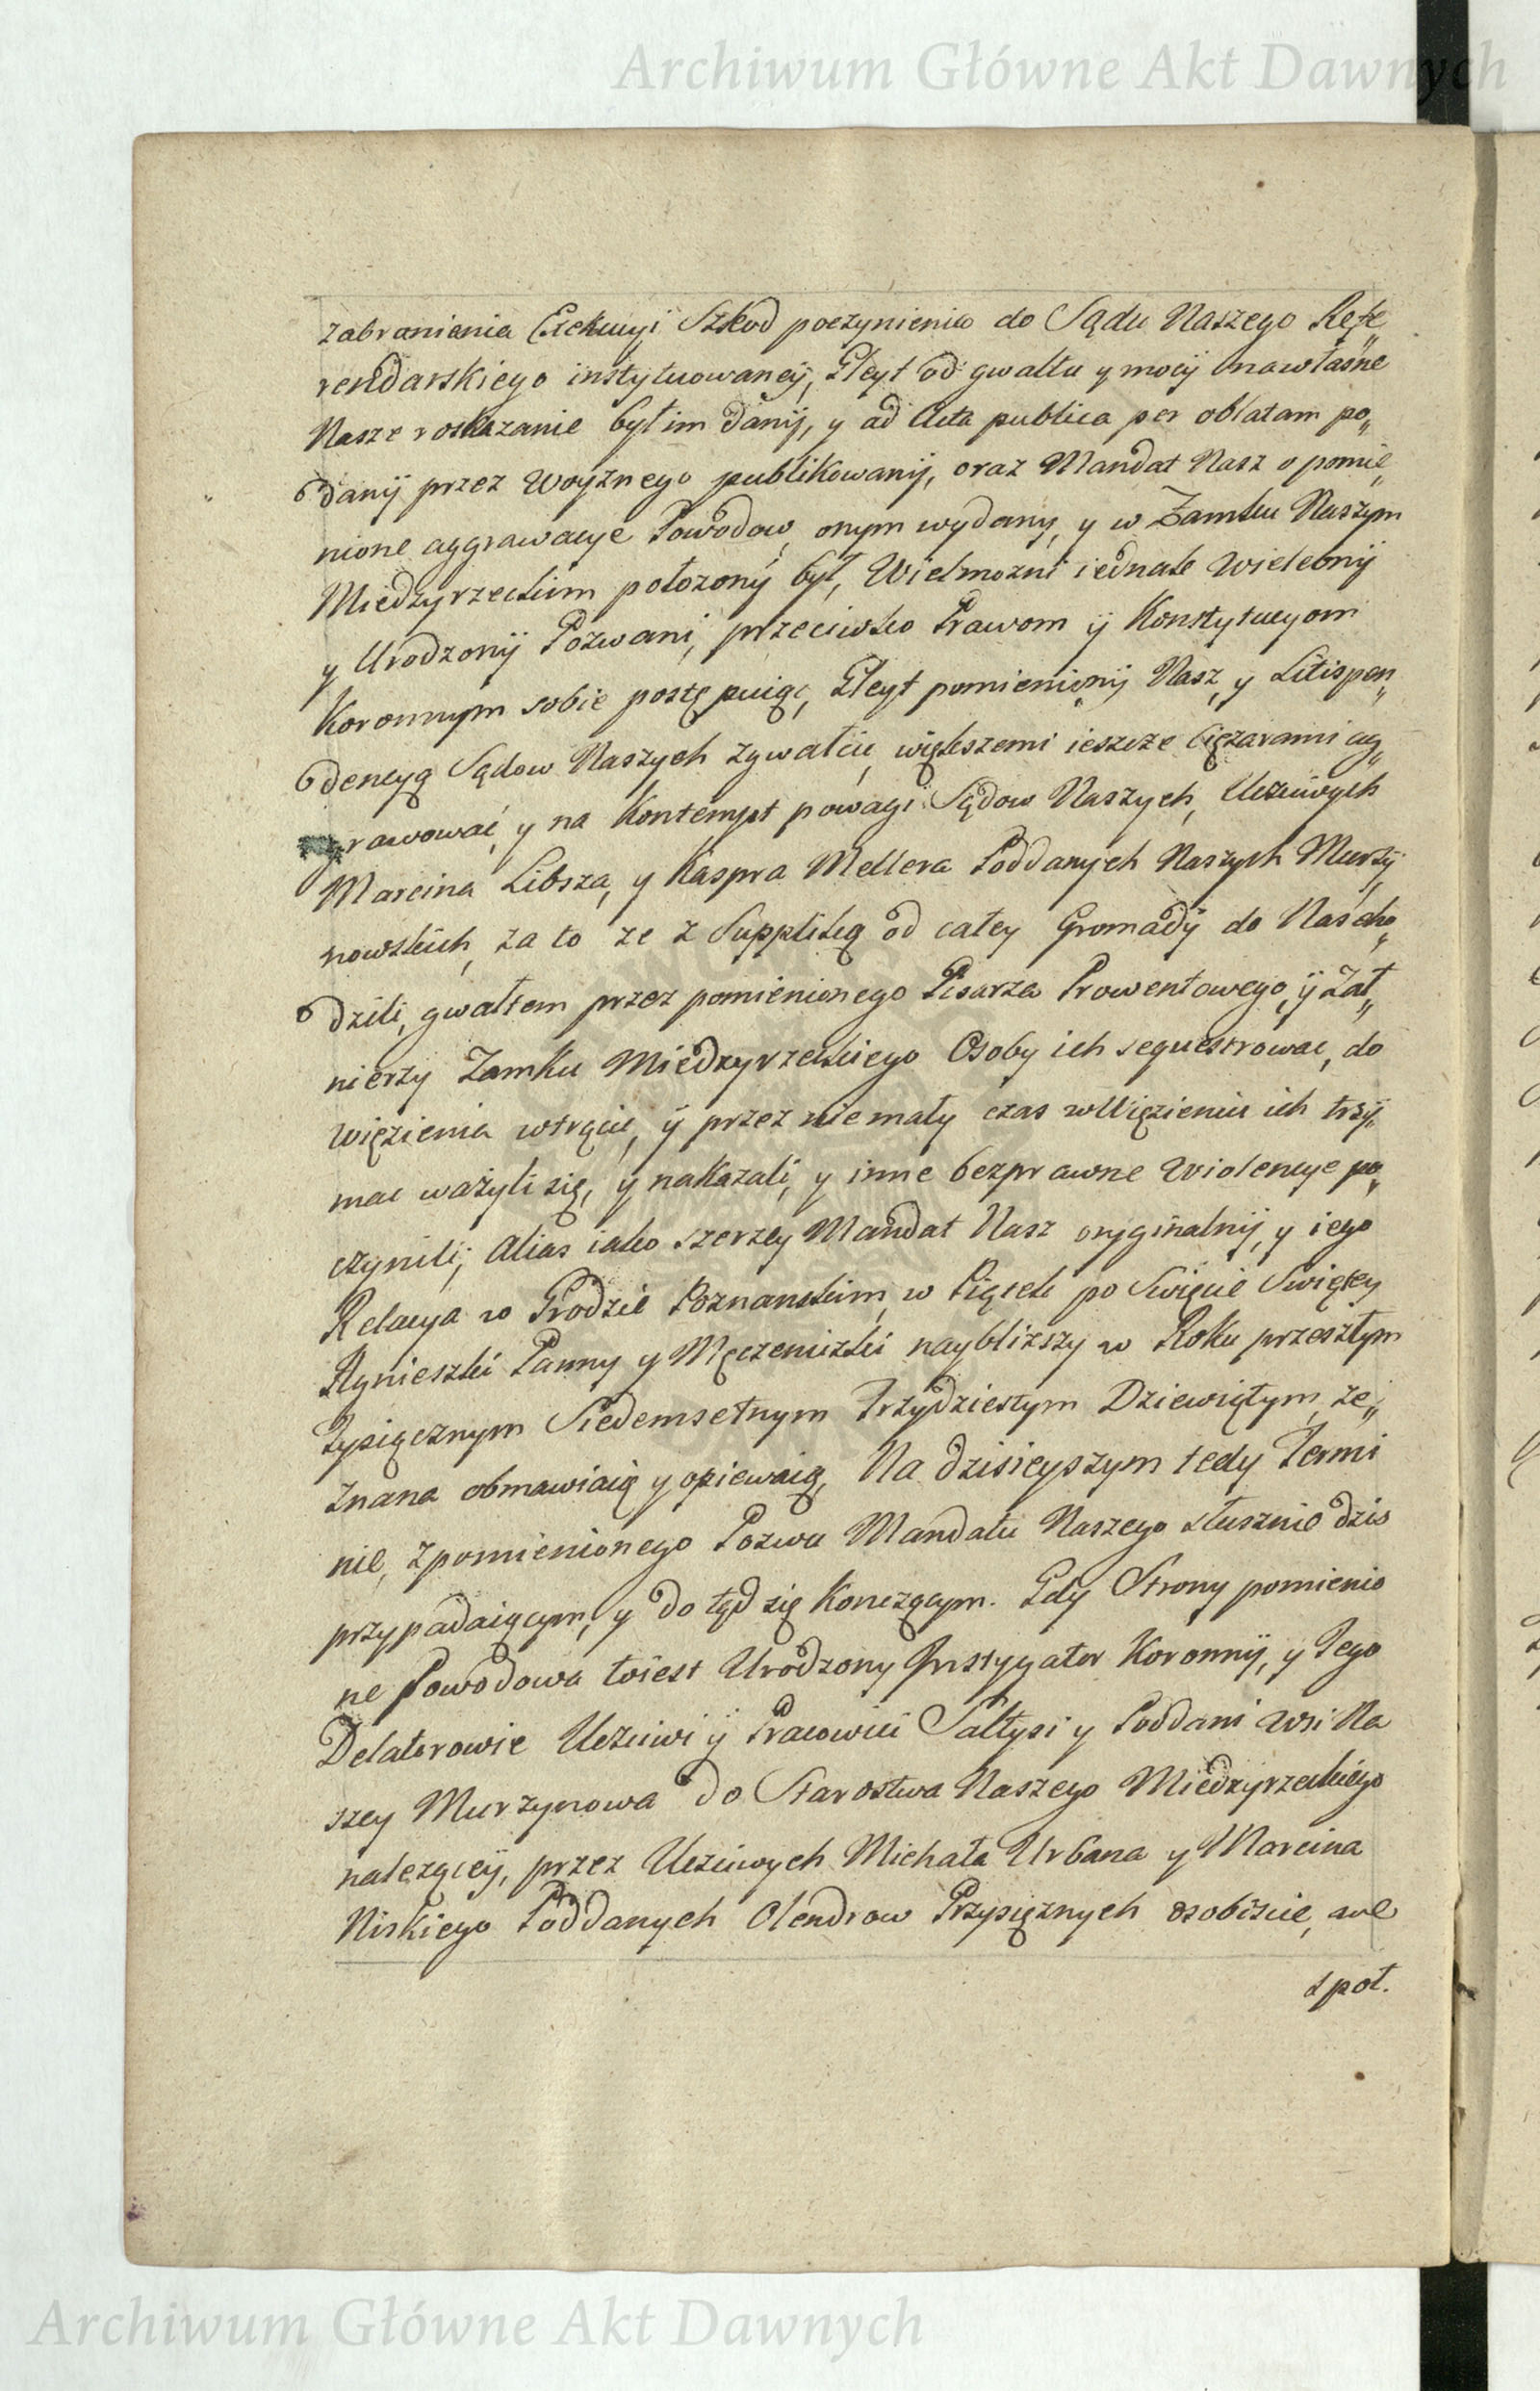 Archiwum Główne Akt Dawnych
zabronienia Exekucyi Szkod poczynienia do Sądu Naszego Refe„
rendarskiego instytuowaney, Gleyt od gwałtu y mocy na własne
Nasze roskazanie był im dany, y ad Acta publica per oblatam po„
dany przez Woyznego publikowany, oraz Mandat Nasz o pomie„
nione aggrawacye Powodow onym wydany, y w Zamku Naszym
Miedzyrzeckim położony był, Wielmozni iednak Wielebny
y Urodzony Pozwani, przeciwko Prawom ÿ Konstytucyom
Koronnym sobie postępuiąc, Gleyt pomieniony Nasz, y Litispen„
dencyą Sądow Naszych zgwałciic, większemi ieszcze Ciężarami ag„
grawować, y na Kontempt powagi Sądow Naszych, Uczciwych
Marcina Libsza, y Kaspra Mellera Poddanych Naszych Murzy„
nowskich, za to ze z Suppliką od całey Gromady do Nas cho„
dzili, gwałtem przez pomienionego Pisarza Prowentowego, ÿ Żoł„
nierzy Zamku Miedzyrzeckiego Osoby ich sequestrowac, do
więzienia wtrącić, ÿ przez nie mały czas w Więzieniu ich trzy„
mac ważyli się, y nakazali, y inne bezprawne Violencye po„
czynili, Alias iako szerzey Mandat Nasz oryginalny, y iego
Relacya w Grodzie Poznanskim w Piątek po Swięcie Swiętey
Agnieszki Panny y Męczeniczki naybliższy w Roku przeszłym
Tysiącznym Siedemsetnym Trzydziestym Dziewiątym, ze„
znana obmawiaią y opiewaią, Na dzisieyszym tedy Termi
nie, z pomienionego Pozwu Mandatu Naszego słusznie dzis
przypadaiącym, y do tąd się Konczącym. Gdy Strony pomienio
ne Powodowa toiest Urodzony Instygator Koronny, y Jego
Delatorowie Uczciwi ÿ Pracowici Sałtysi y Poddani wsi Na
szey Murzynowa do Starostwa Naszego Miedzyrzeckiego
należącey, przez Uczciwych Michała Urbana y Marcina
Niskiego Poddanych Olendrow Przysięznych osobiscie, we
społ.
Archiwum Główne Akt Dawnych